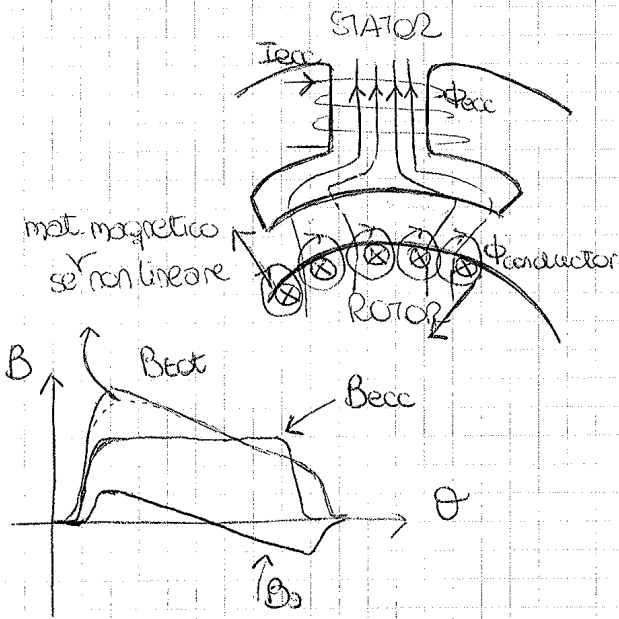 STATOR
Iecc
Φecc
mat. magnetico
se non lineare
Φconductor
ROTOR
B
Btot
Becc
θ